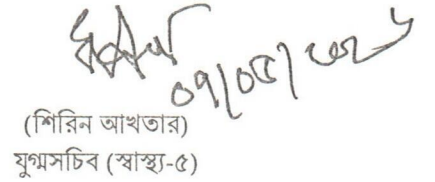 ০৭/০৫/২০২৬
(শিরিন আখতার)
যুগ্মসচিব (স্বাস্থ্য-৫)